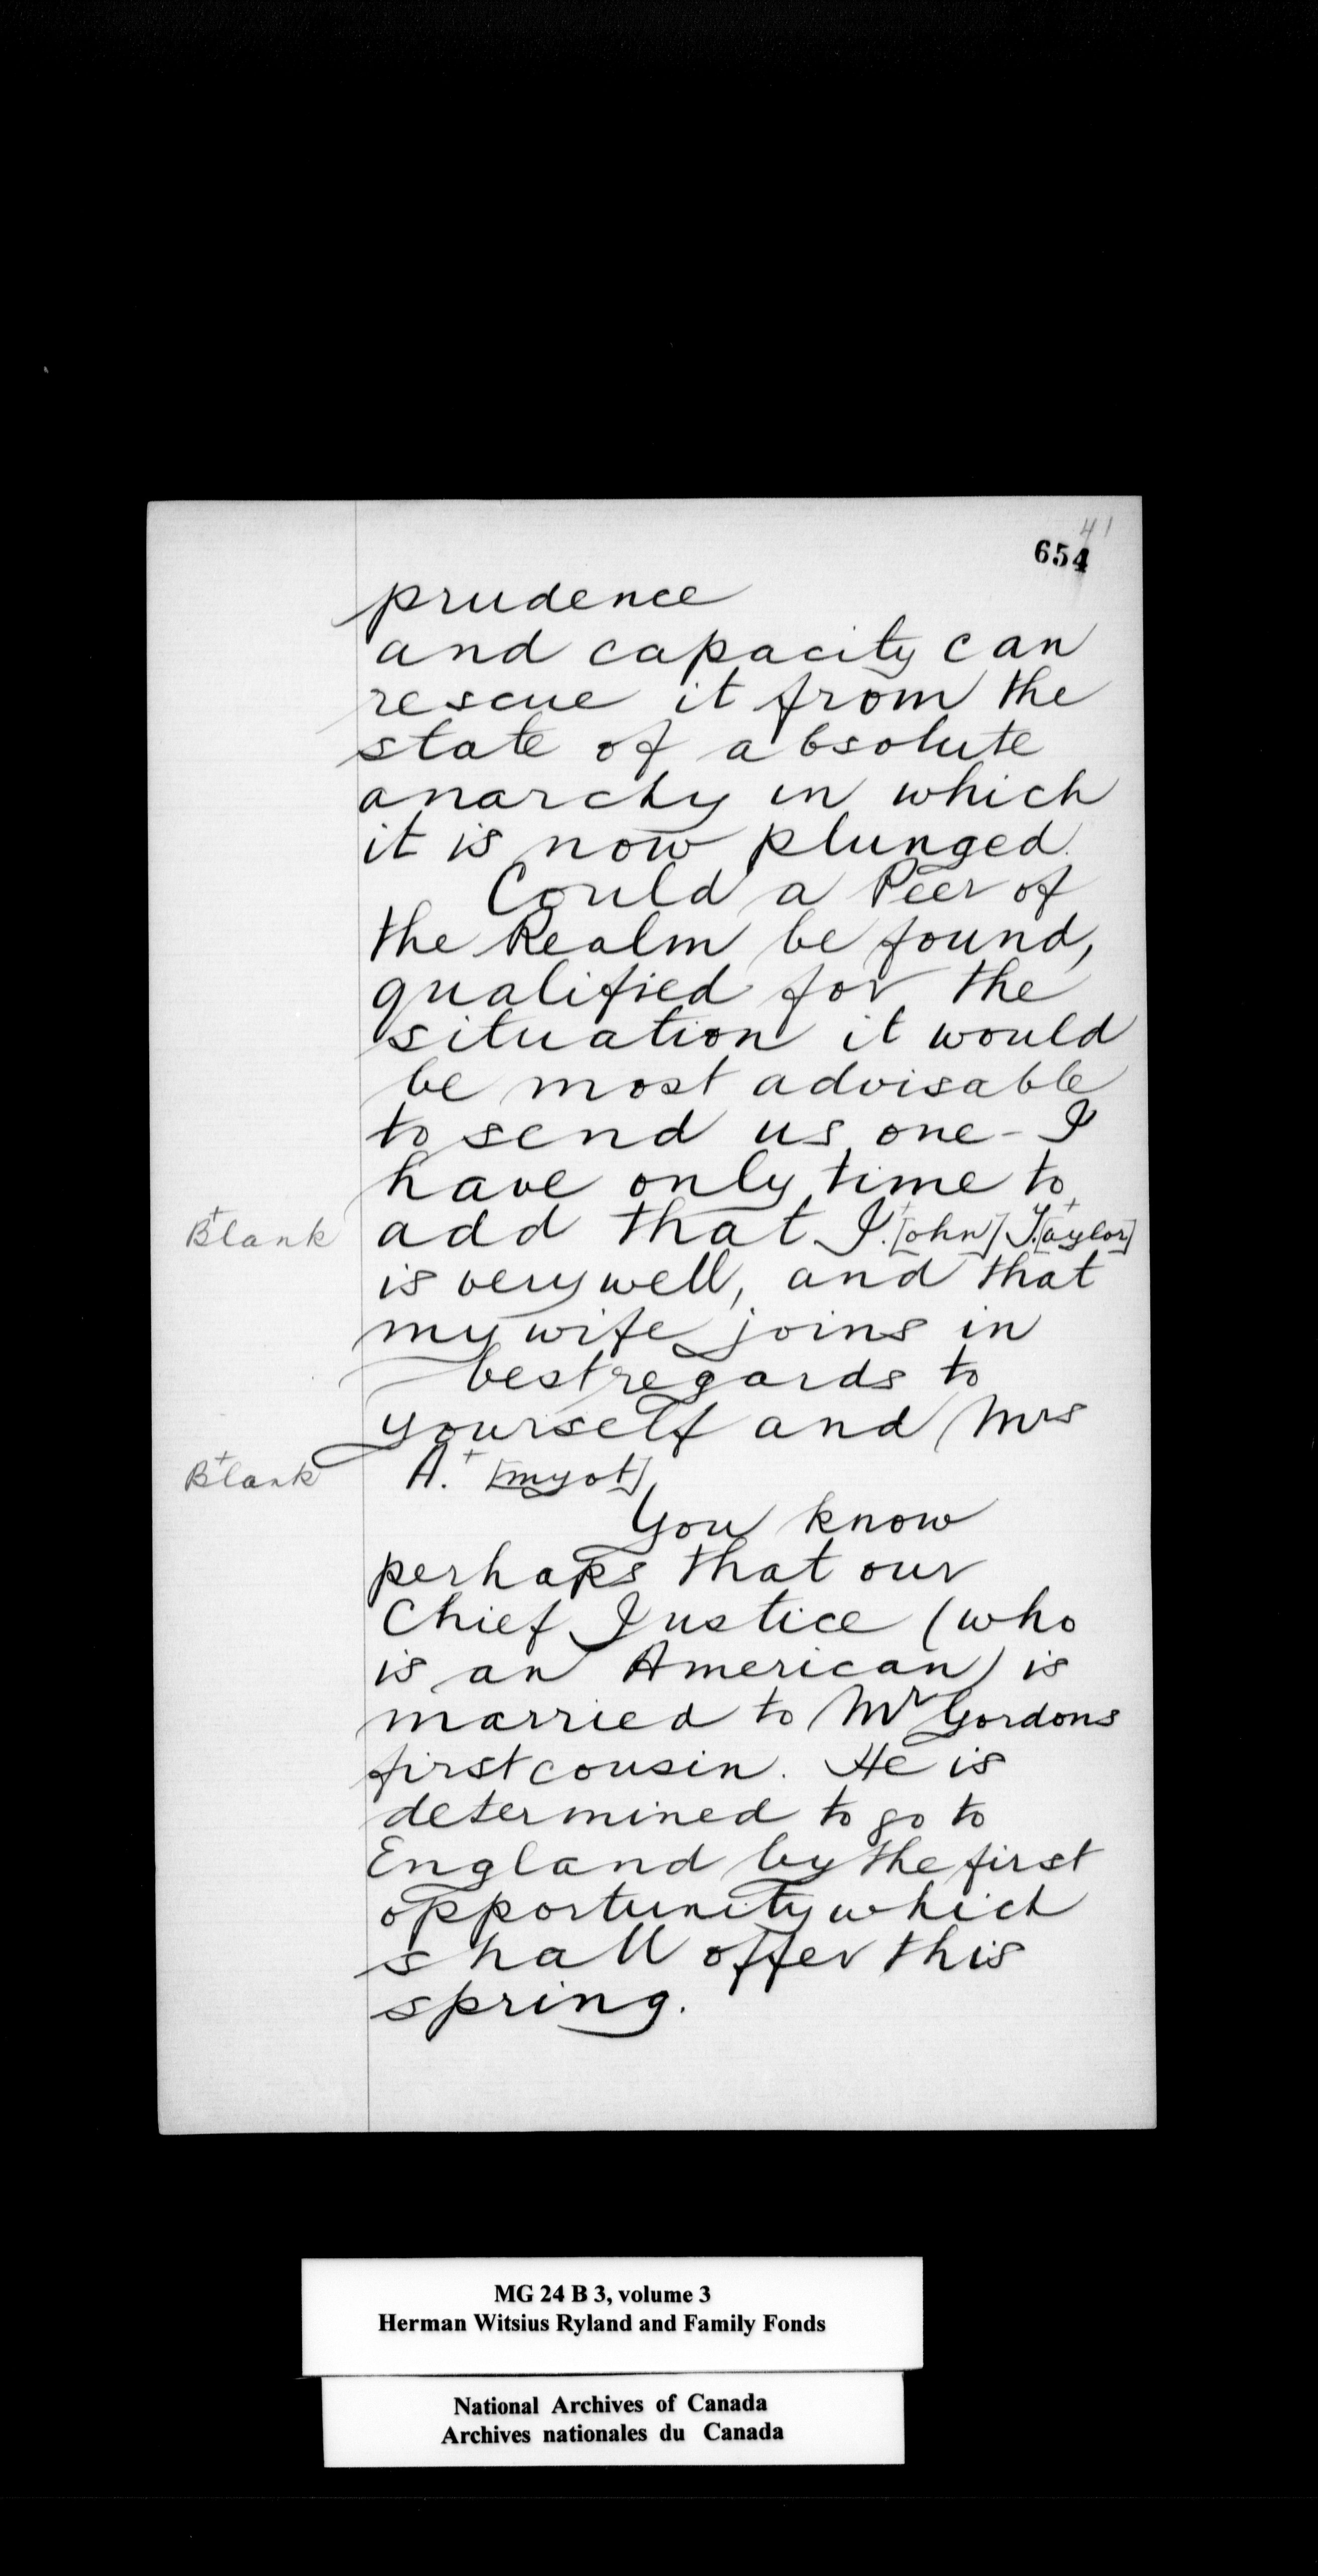 41
654
prudence
and capacity can
rescue it from the
state of absolute
anarchy in which
it is now plunged.
Could a Peer of
the Realm be found,
qualified for the
situation it would
be most advisable
to send us one - I
have only time to
+
Blank
add that J.+[ohn] T.+[aylor]
is very well, and that
my wife joins in
best regards to
yourself and Mrs
+
Blank
A.+ [myot]
You know
perhaps that our
Chief Justice (who
is an American) is
married to Mr Gordons
first cousin. He is
determined to go to
England by the first
opportunity which
shall offer this
spring.
MG 24 B 3, volume 3
Herman Witsius Ryland and Family Fonds
National Archives of Canada
Archives nationales du Canada